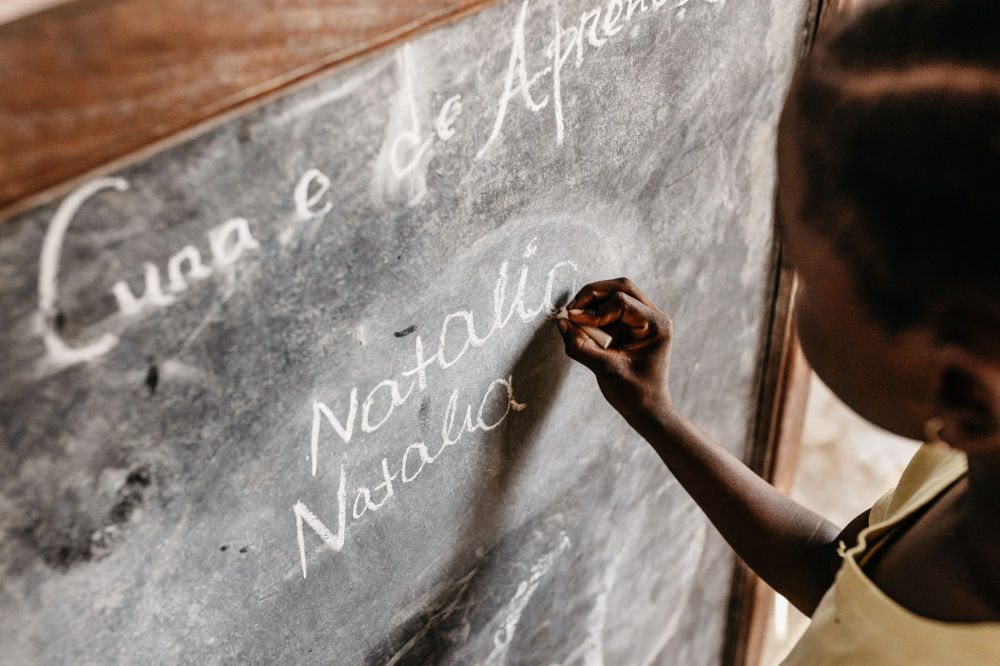 Cuna e de Apren
Natalia
Natalia